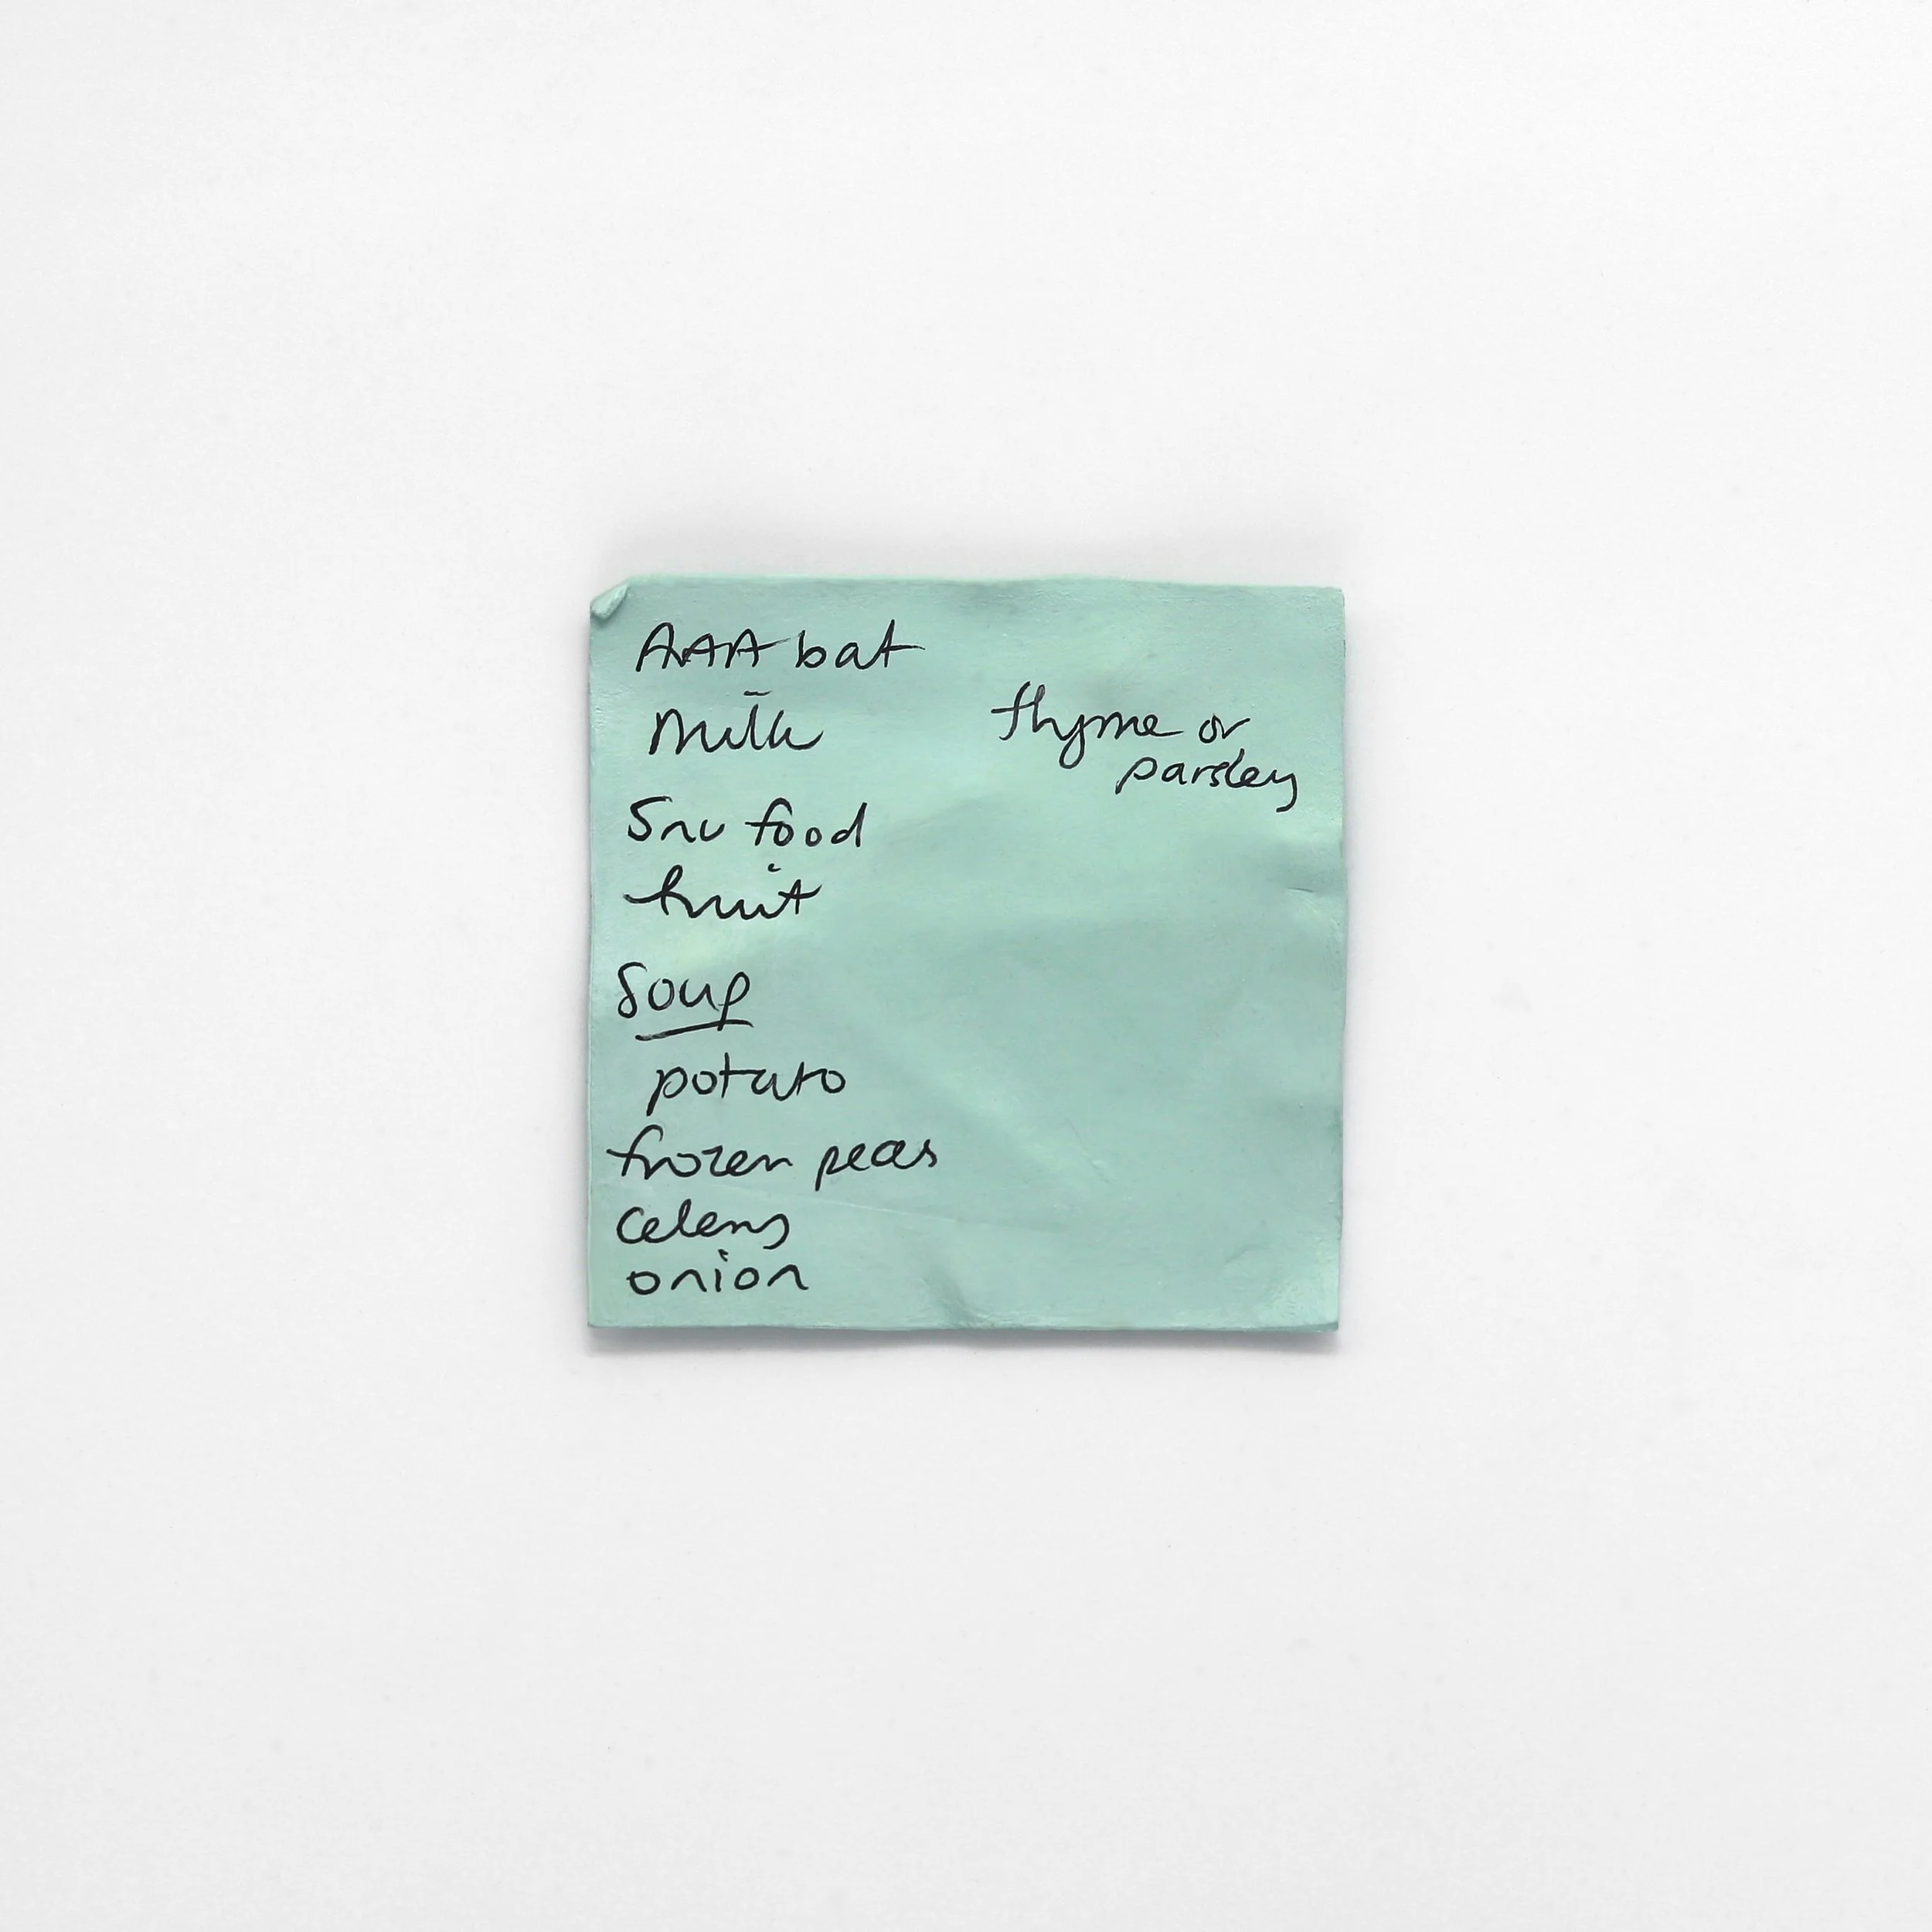 AAA bat
Milk
thyme or
parsley
Snv food
fruit
Soup
potato
frozen peas
Celery
onion